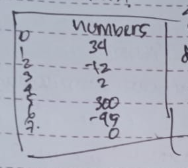 numbers
0 34
1 -12
2 2
3
4 300
5 -99
6 0
7